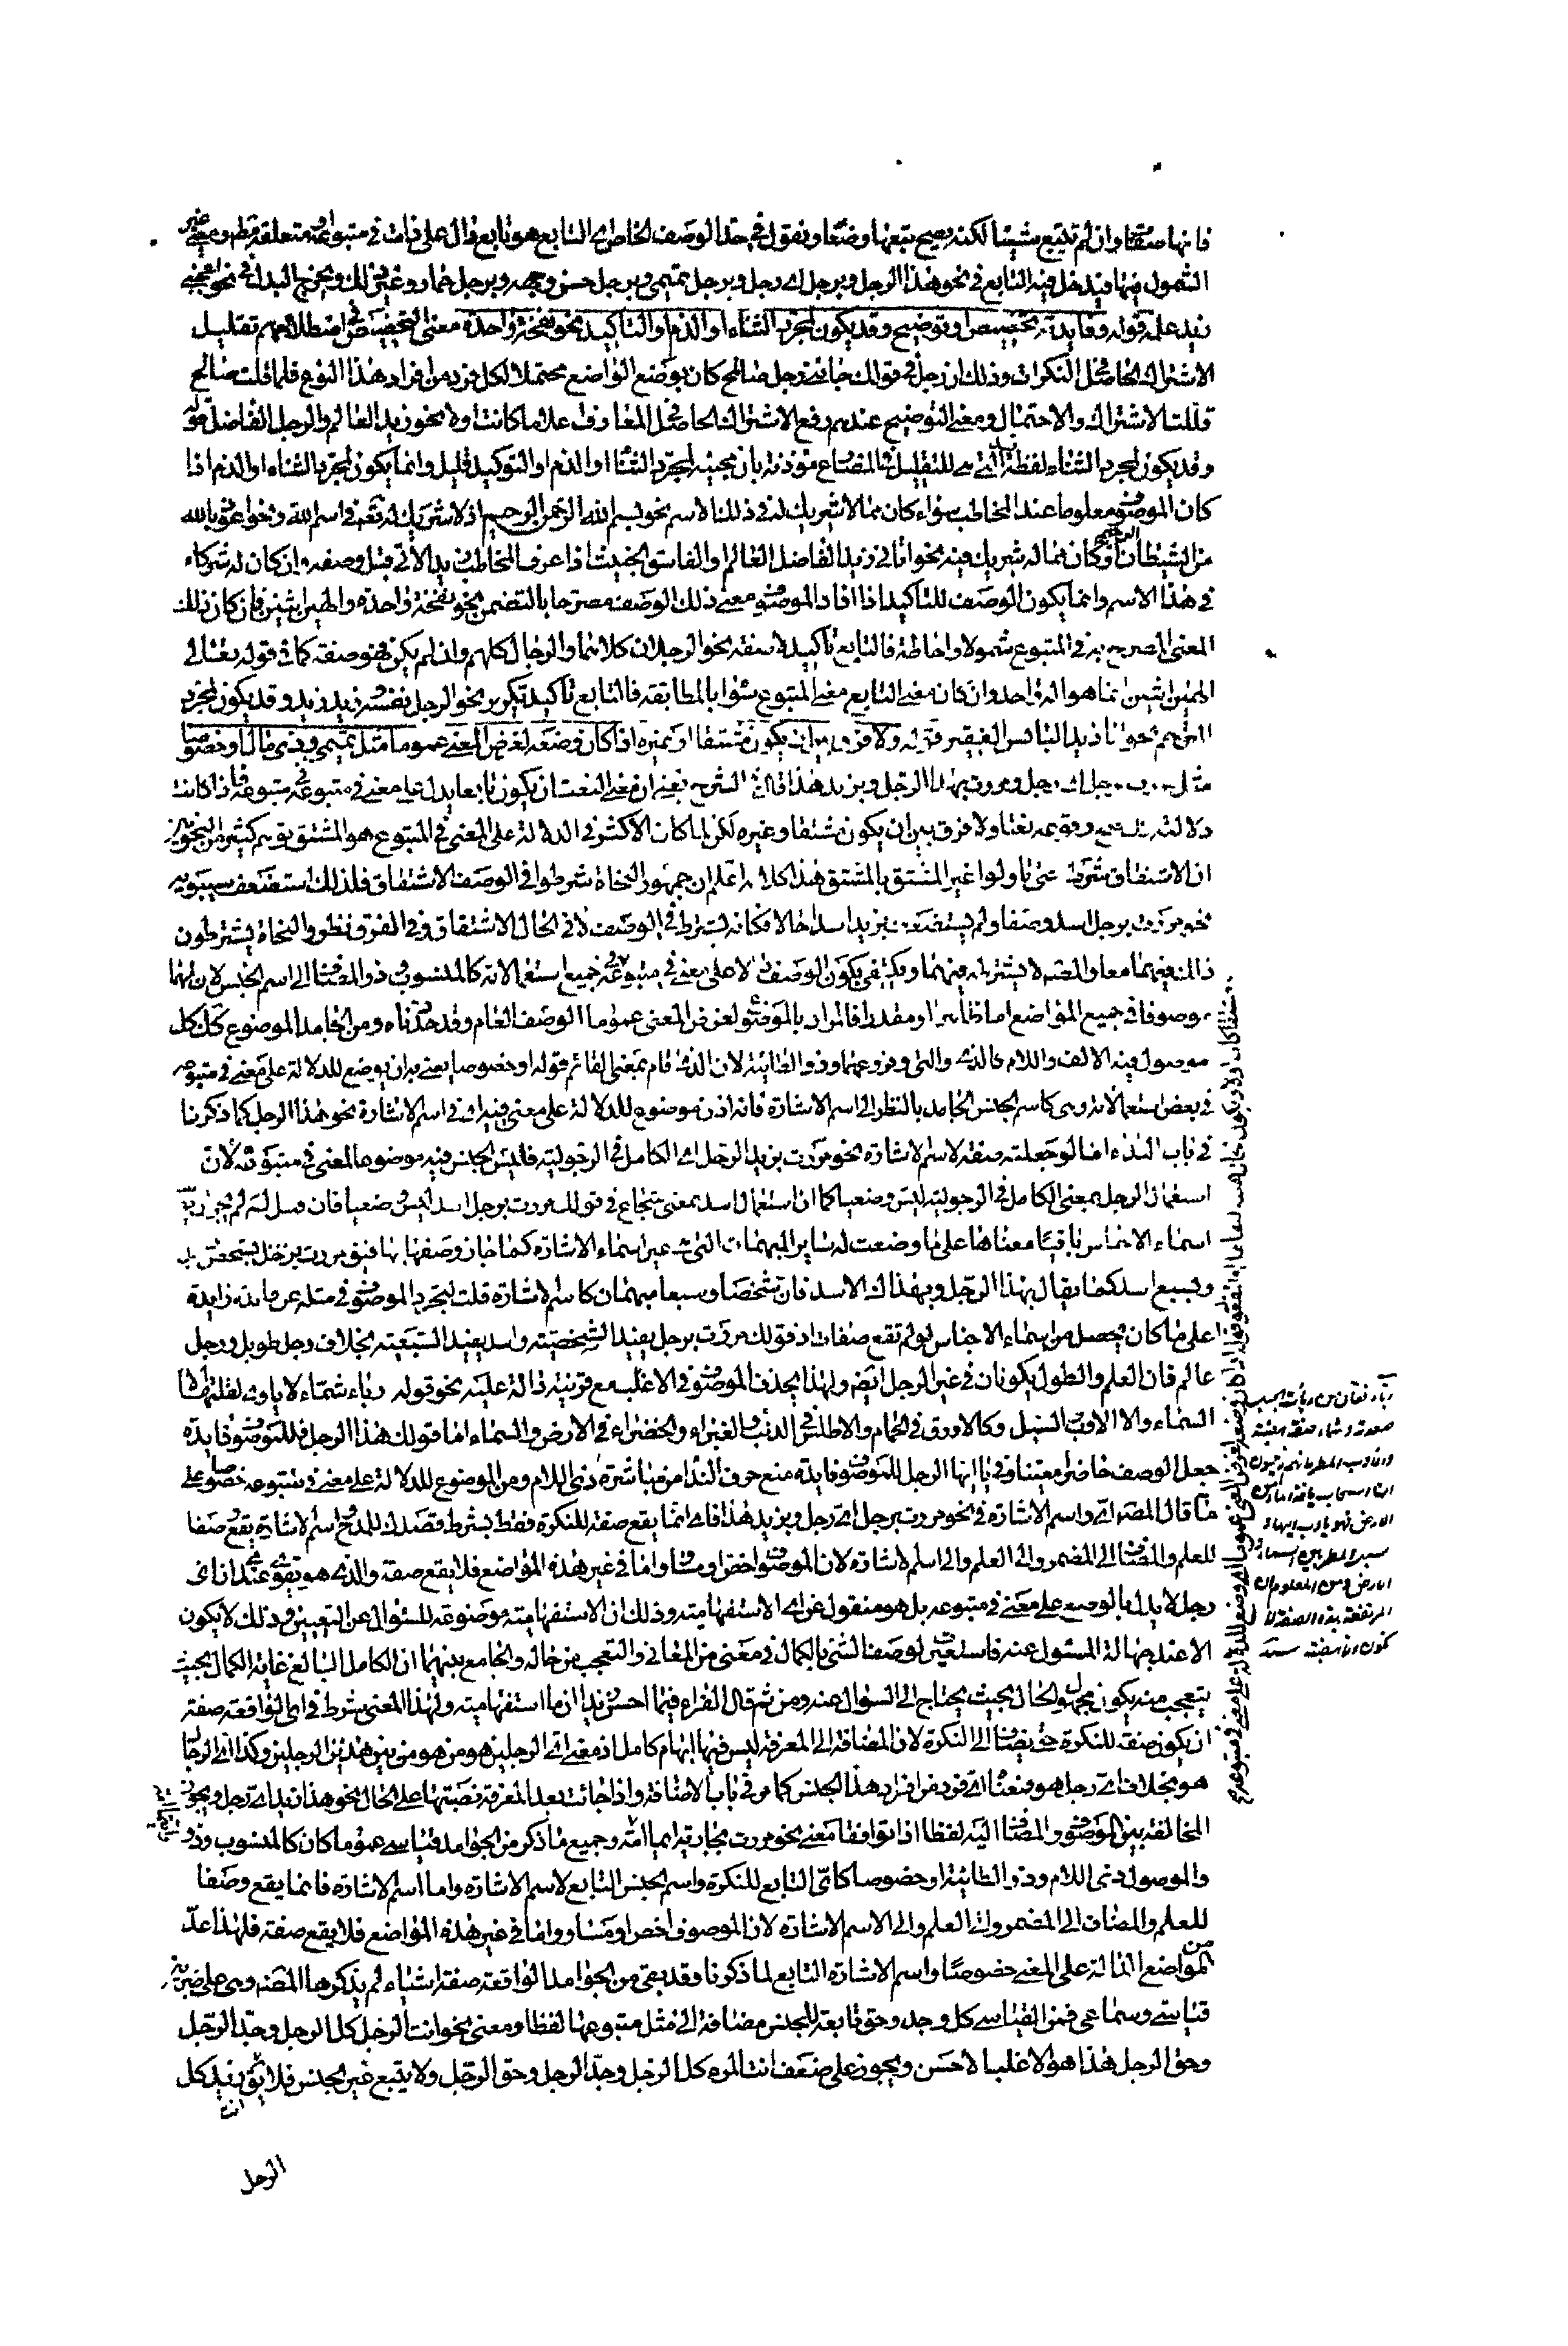 فانها صفتها وان لم تتبع شيئا لكنه يصح تبعها وضعا ونقول في حد الوصف الخاص اي التابع هو تابع دال على ذات في متبوعه متعلقة
الشمول فيها فيدخل فيه التابع في نحو هذا الرجل وبرجل اي رجل وبرجل تميمي وبرجل حسن وجهه وبرجل حمار وغير ذلك ويخرج البدل في نحو اعجبني
زيد علمه قوله وفايدته تخصيص او توضيح وقد يكون لمجرد الثناء او الذم او التاكيد نحو نفخة واحدة معنى التخصيص في اصطلاحهم تقليل
الاشتراك الحاصل في النكرات وذلك ان رجل في قولك جائني رجل صالح كان بوضع الواضع محتملا لكل فرد من افراد هذا النوع فلما قلت صالح
قللت الاشتراك والاحتمال ومعنى التوضيح عندهم رفع الاشتراك الحاصل في المعارف اعلاما كانت او لا نحو زيد العالم والرجل الفاضل قوله
وقد يكون لمجرد الثناء لفظة قد التي هي للتقليل في المضارع مؤذنة بان مجيئه لمجرد الثناء او الذم او التوكيد قليل وانما يكون لمجرد الثناء او الذم اذا
كان الموصوف معلوما عند المخاطب سواء كان مما لا شريك له في ذلك الاسم نحو بسم الله الرحمن الرحيم اذ لا شريك له تعالى في اسم الله ونحو اعوذ بالله
من الشيطان الرجيم او كان مما له شريك فيه نحو اتاني زيد الفاضل العالم والفاسق الخبيث اذا عرف المخاطب زيد الآتي قبل وصفه وان كان له شركاء
في هذا الاسم وانما يكون الوصف للتاكيد اذا افاد الموصوف معنى ذلك الوصف مصرحا بالتضمن نحو نفخة واحدة والهين اثنين فان كان ذلك
المعنى المصرح به في المتبوع شمولا واحاطة فالتابع تاكيد لا صفة نحو الرجلان كلاهما والرجال كلهم وان لم يكن فهو صفة كما في قوله تعالى
الهين اثنين انما هو اله واحد وان كان معنى التابع معنى المتبوع سواء بالمطابقة فالتابع تاكيد تكرير نحو الرجل نفسه زيد زيد وقد يكون لمجرد
الترحم نحو انا زيد البائس الفقير قوله ولا فرق بين ان يكون مشتقا او غيره اذا كان وضعه لغرض المعنى عموما مثل تميمي وذي مال او خصوصا
مثل مررت برجل اي رجل ومررت بهذا الرجل وبزيد هذا قال في الشرح يعني ان معنى النعت ان يكون تابعا يدل على معنى في متبوعه فاذا كانت
دلالته كذلك صح وقوعه نعتا ولا فرق بين ان يكون مشتقا وغيره لكن لما كان الاكثر في الدلالة على المعنى في المتبوع هو المشتق توهم كثير من النحويين
ان الاشتقاق شرط حتى تاولوا غير المشتق بالمشتق هذا كلامه اعلم ان جمهور النحاة شرطوا في الوصف الاشتقاق فلذلك استضعف سيبويه
نحو مررت برجل اسد وصفا ولم يستضعف بزيد اسدا حالا فكانه يشترط في الوصف لا في الحال الاشتقاق وفي الفرق نظر والنحاة يشترطون
ذلك فيهما معا والمصنف لا يشترطه فيهما ويكتفي بكون الوصف دالا على معنى في متبوعه في جميع استعمالاته كالمنسوب وذو المضاف الى اسم الجنس لان لهما
موصوفا في جميع المواضع اما ظاهرا او مقدرا فالمراد بالموضوع لغرض المعنى عموما الوصف العام وقد حددناه ومن الجامد الموضوع كذلك كل
موصول فيه الالف واللام كالذي والتي وفروعهما وذو الطائية لان الذي قام بمعنى القائم قوله او خصوصا يعني به ان يوضع للدلالة على معنى في متبوعه
في بعض استعمالاته وهي كاسم الجنس الجامد بالنظر الى اسم الاشارة فانه اذن موضوع للدلالة على معنى فيه اي في اسم الاشارة نحو هذا الرجل كما ذكرنا
في باب النداء اما لو جعلته صفة لا لاسم الاشارة نحو مررت بزيد الرجل اي الكامل في الرجولية فليس الجنس فيه موضوعا لمعنى في متبوعه لان
استعمال الرجل بمعنى الكامل في الرجولية ليس وضعيا كما ان استعمال اسد بمعنى شجاع في قولك مررت برجل اسد ليس وضعيا فان قيل لم لم يجز
اسماء الاجناس باقيا معناها على ما وضعت له سائر المبهمات التي هي غير اسماء الاشارة كما جاز وصفها بها فيق مررت برجل بشخص
وبسبع اسد كما يقال بهذا الرجل وبهذاك الاسد فان شخصا وسبعا مبهمان كاسم الاشارة قلت لتجرد الموصوف في مثله عن فائدة زايدة
على ما كان يحصل من اسماء الاجناس لو لم تقع صفات اذ قولك مررت برجل يفيد الشخصية واسد يفيد السبعية بخلاف رجل طويل ورجل
عالم فان العلم والطول يكونان في غير الرجل ايضا ولهذا يحذف الموصوف في الاغلب مع قرينة دالة عليه نحو قوله رباء شماء لا ياوي لقلتها الا
السحاب والا الاوب والسبل وكالاورق في الحمام والاطلس في الذئب والغبراء والخضراء في الارض والسماء اما قولك هذا الرجل فللموصوف فايدة
جعل الوصف حاضرا معينا وفي يا ايها الرجل للموصوف فايدة منع حرف النداء من مباشرة ذي اللام ومن الموضوع للدلالة على معنى في متبوعه خصوصا على
ما قال المصنف اي واسم الاشارة في نحو مررت برجل اي رجل وبزيد هذا فاي انما يقع صفة للنكرة فقط بشرط قصدك للمدح واسم الاشارة يقع وصفا
للعلم والمضاف الى المضمر والى العلم والى اسم الاشارة لان الموصوف اخص او مساو واما في غير هذه المواضع فلا يقع صفة والذي هو يقوى عندي ان اي
رجل لا يدل بالوضع على معنى في متبوعه بل هو منقول عن اي الاستفهامية وذلك ان الاستفهامية موضوعة للسؤال عن التعيين وذلك لا يكون
الا عند جهالة المسئول عنه فاستعيرت لوصف الشئ بالكمال في معنى من المعاني والتعجب من حاله والجامع بينهما ان الكامل البالغ غاية الكمال بحيث
يتعجب منه يكون مجهول الحال بحيث يحتاج الى السؤال عنه ومن ثم قال الفراء في ما احسن زيدا ان ما استفهامية ولهذا المعنى شرط في اي الواقعة صفة
ان يكون صفة للنكرة حتى يضاف الى النكرة لان المضافة الى المعرفة ليس فيها ابهام كامل اذ معنى اي الرجلين هو من هو من بين هذين الرجلين وكذا اي الرجال
هو بخلاف اي رجل هو فمعناه اي فرد من افراد هذا الجنس كما مر في باب الاضافة واذا جائت بعد المعرفة نصبتها على الحال نحو هذا زيد اي رجل ويجوز
المخالفة بين الموصوف والمضاف اليه لفظا اذا توافقا معنى نحو مررت بجارية ايما امة وجميع ما ذكر من الجوامد قياسي عموما كان كالمنسوب وذو
والموصول ذي اللام وذو الطائية او خصوصا كاي التابع للنكرة واسم الجنس التابع لاسم الاشارة واما اسم الاشارة فانما يقع وصفا
للعلم والمضاف الى المضمر والى العلم والى الاسم الاشارة لان الموصوف اخص او مساو واما في غير هذه المواضع فلا يقع صفة فلهذا عد
من المواضع الدالة على المعنى خصوصا واسم الاشارة التابع لما ذكرنا وقد بقي من الجوامد الواقعة صفة اشياء لم يذكرها المصنف وهي على ضربين
قياسي وسماعي فمن القياسي كل وجد وحق تابعة للجنس مضافة الى مثل متبوعها لفظا ومعنى نحو انت الرجل كل الرجل وجد الرجل
وحق الرجل هذا هو الاغلب الاحسن ويجوز على ضعف انت المرء كل الرجل وجد الرجل وحق الرجل ولا يتبع غير الجنس فلا يق انت زيد كل
الرجل